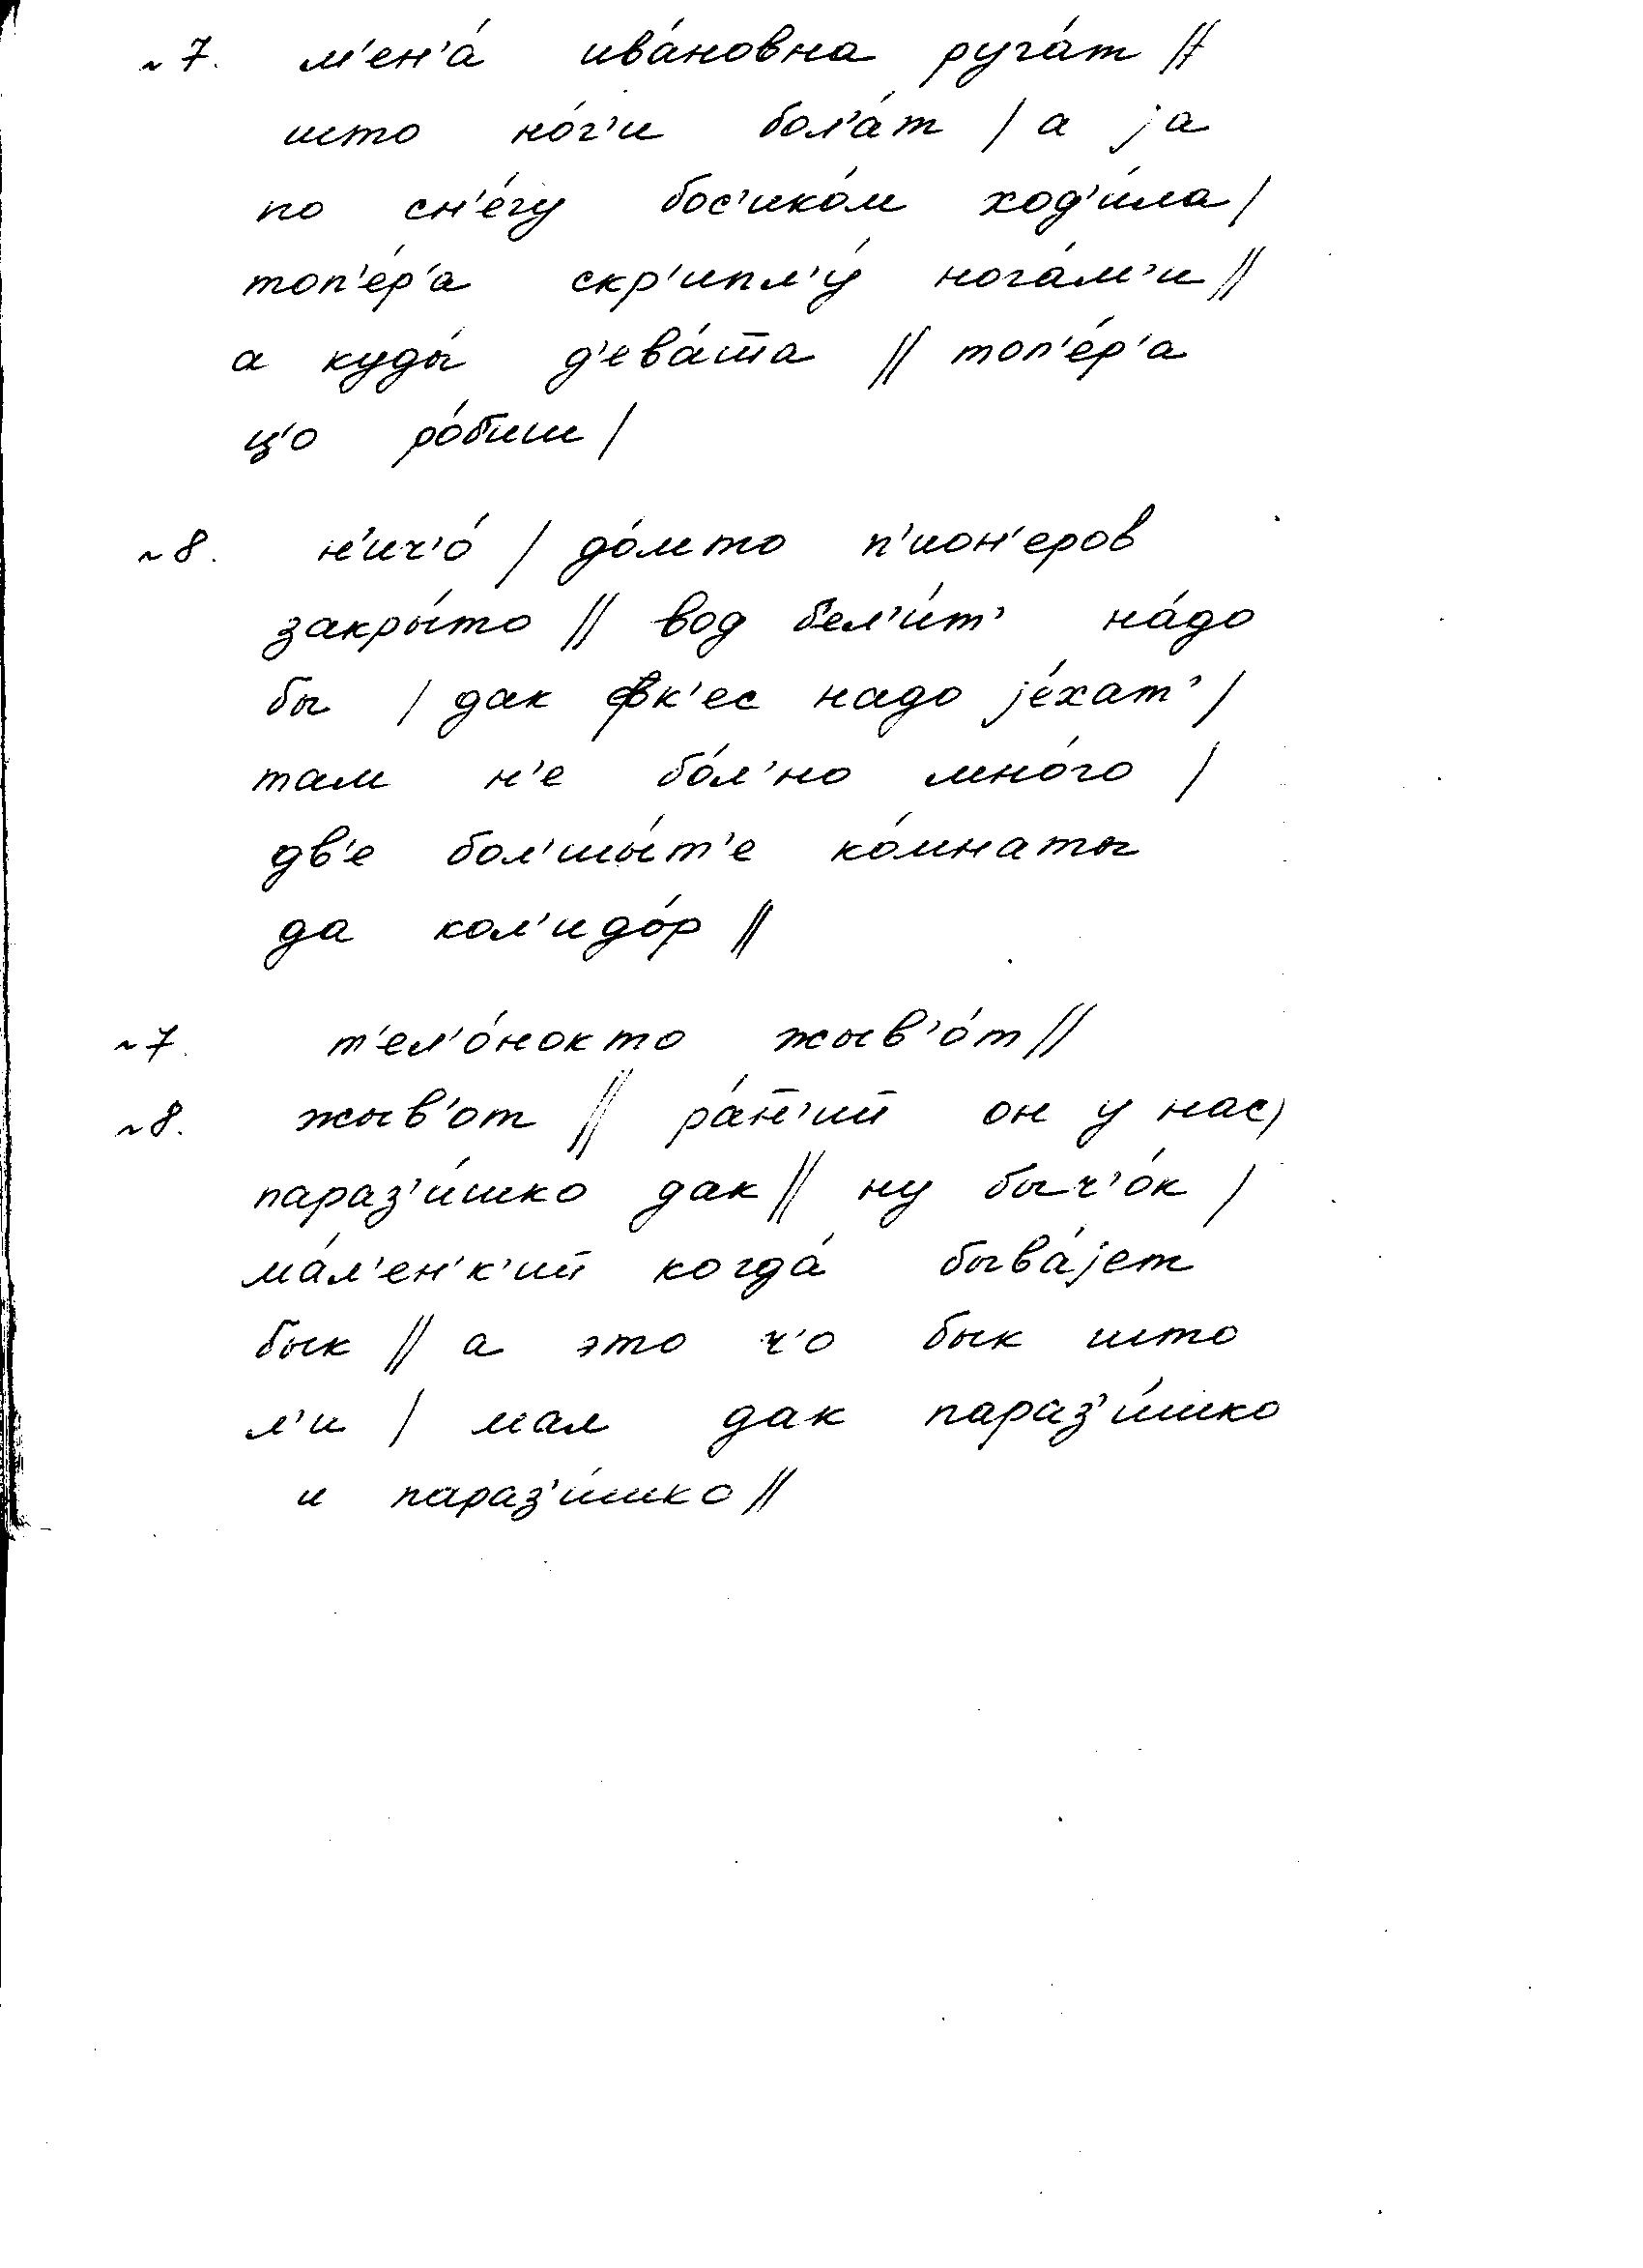 ~7. м'ен'а́ ива́новна руга́т //
што но́г'и бол'а́т / а jа
по сн'е́гу бос'ико́м ход'и́ла /
топ'е́р'а скр'ипл'у́ нога́м'и //
а куды́ д'ева́т̅а // топ'е́р'а
ц'о ро́биш /
~8. н'ич'о́ / до́мто п'ион'еров
закры́то // вод бел'и́т' на́до
бы / дак фк'ес надо jе́хат' /
там н'е бо́л'но мно́го /
дв'е бол'шы́т'е ко́мнаты
да кол'идо́р //
~7. т'ел'о́нокто жыв'о́т //
~8. жыв'от // ра́н̅'ий он у нас)
параз'и́шко дак // ну быч'о́к /
ма́л'ен'к'ий когда́ быва́jет
бык // а это ч'о бык што
л'и / мал дак параз'и́шко
и параз'и́шко //